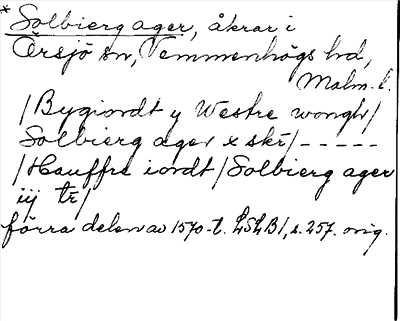 * Solbierg ager, åkrar i
Örsjö sn, Vemmenhögs hd,
Malm. l.
/Bygiordt y Westre wongh/
Solbierg ager x skr/-----
/Hauffre iordt/Solbierg ager
iij tr/
förra delen av 1570-t. LSLB1, s. 257. orig.